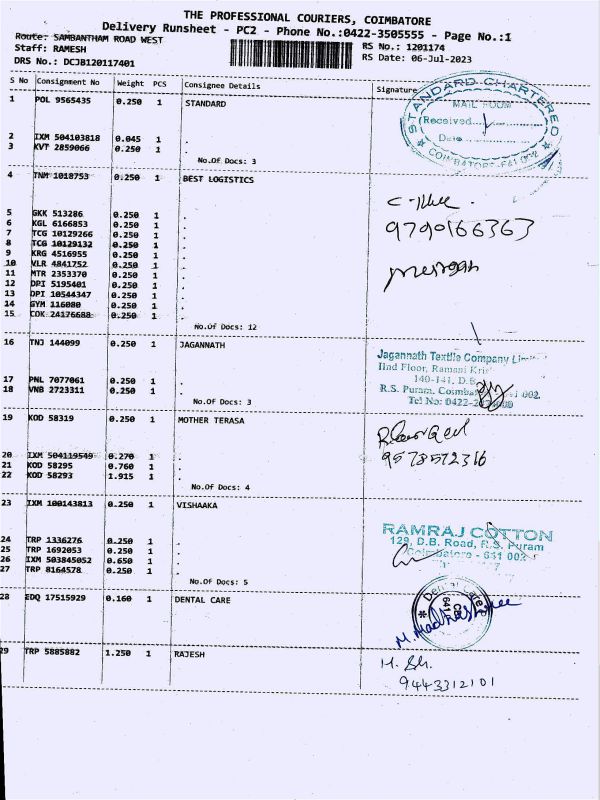 THE PROFESSIONAL COURIERS, COIMBATORE
Delivery Runsheet - PC2 - Phone No.:0422-3505555 - Page No.:1
Route: SAMBANTHAM ROAD WEST
RS No.: 1201174
Staff: RAMESH
RS Date: 06-Jul-2023
DRS No.: DCJB120117401
S No Consignment No Weight PCS Consignee Details Signature
1 POL 9565435 0.250 1 STANDARD
STANDARD CHARTERED
MAIL ROOM
Received
Date
COIMBATORE-641 002
2 IXM 504103818 0.045 1 .
3 KVT 2859066 0.250 1 .
No.Of Docs: 3
4 TNM 1018753 0.250 1 BEST LOGISTICS
5 GKK 513286 0.250 1 .
6 KGL 6166853 0.250 1 .
9790166363
7 TCG 10129266 0.250 1 .
8 TCG 10129132 0.250 1 .
9 KRG 4516955 0.250 1 .
10 VLR 4841752 0.250 1 .
11 MTR 2353370 0.250 1 .
12 DPI 5195401 0.250 1 .
13 DPI 10544347 0.250 1 .
14 GYM 116080 0.250 1 .
15 COK 24176688 0.250 1 .
No.Of Docs: 12
16 TNJ 144099 0.250 1 JAGANNATH
Jagannath Textile Company
IInd Floor, Ramani
140-141, D.B.
17 PNL 7077061 0.250 1 .
18 VNB 2723311 0.250 1 .
R.S. Puram, 002.
Tel No: 0422-
No.Of Docs: 3
19 KOD 58319 0.250 1 MOTHER TERASA
9578572316
20 IXM 504119549 0.270 1 .
21 KOD 58295 0.760 1 .
22 KOD 58293 1.915 1 .
No.Of Docs: 4
23 IXM 100143813 0.250 1 VISHAAKA
RAMRAJ COTTON
129, D.B. Road, R.S. Puram
Coimbatore - 641 002
24 TRP 1336276 0.250 1 .
25 TRP 1692053 0.250 1 .
26 IXM 503845052 0.650 1 .
27 TRP 8164578 0.250 1 .
No.Of Docs: 5
28 EDQ 17515929 0.160 1 DENTAL CARE
29 TRP 5885882 1.250 1 RAJESH
9443312101